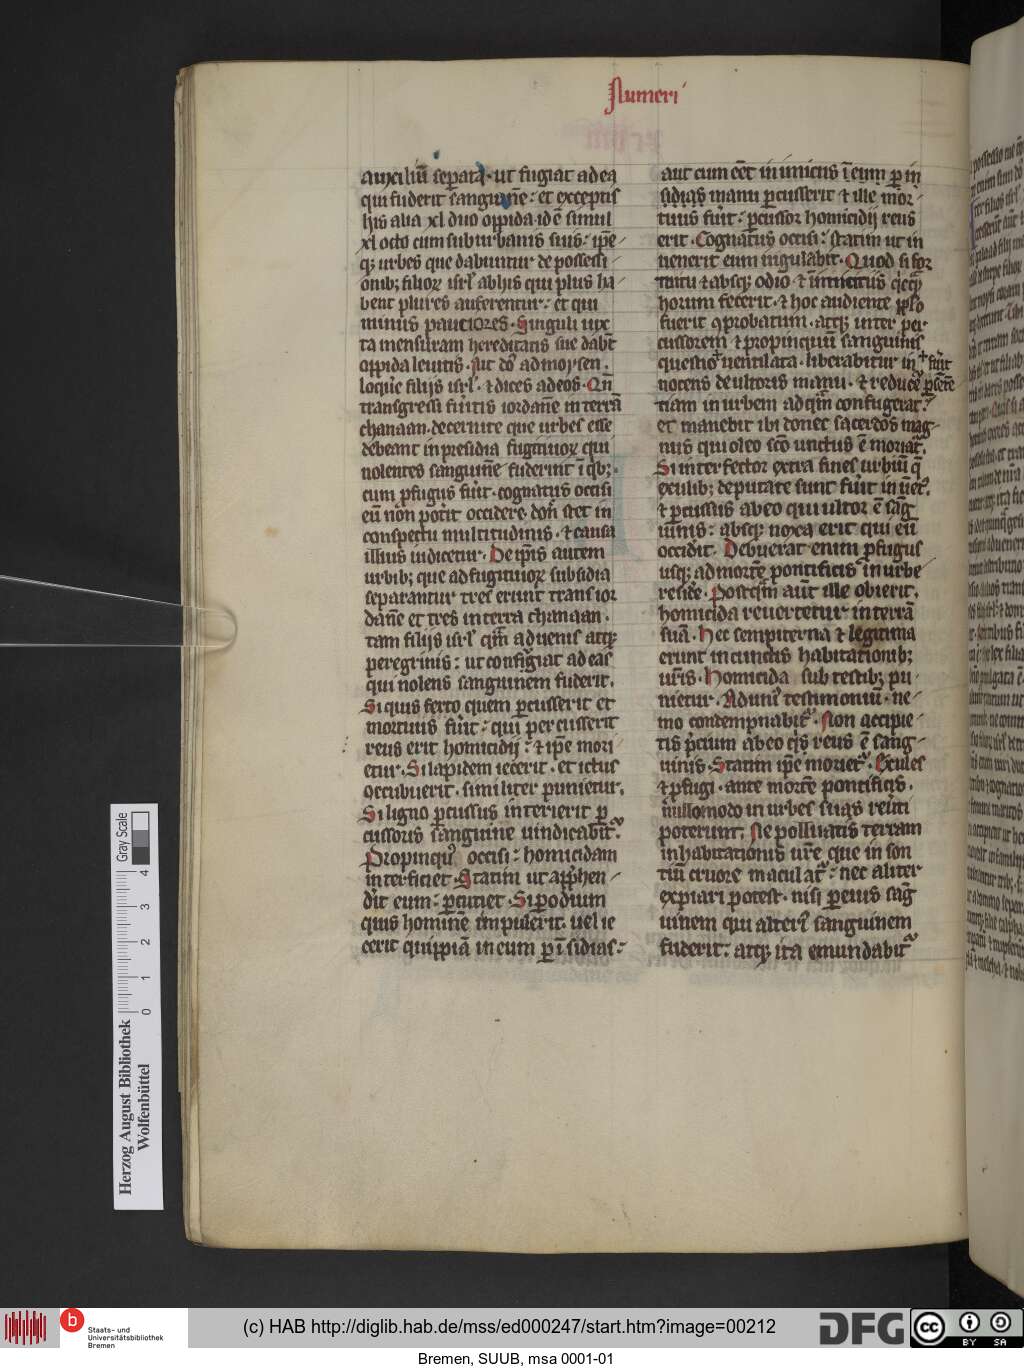 Numeri
auxiliū seperata· ut fugiat ad ea
qui fuderit sanguinē: et exceptis
hiis alia xl duo oppida· id ē simul
xl octo cum suburbanis suis: ip̄e
qꝫ urbes que dabuntur de possessi
onibꝫ filioꝝ isrl̄ ab hiis qui plus ha
bent plures auferentur: et qui
minus pauciores· Singuli iux
ta mensuram hereditatis sue dabūt
oppida leuitis· Ait do᷒ ad moysen·
loqu̅e filiis isrl̄· ⁊ dices ad eos· Qn̄
transgressi fūitis iordanē in terrā
chanaan· decernite que urbes esse
debeant in presidia fugitiuoꝝ qui
nolentes sanguinē fuderint· ī qibꝫ·
cum ꝓfugus fūit· cognatus occisi
eū nōn pot̄it occidere· don̄ stet in
conspectu multitudinis· ⁊ causa
illius iudicetur· De ip̄is autem
urbibꝫ que ad fugitiuoꝝ subsidia
separantur tres erunt trans ior
danē et tres in terra chanaan·
tam filiis isrl̄ qm̄ aduenis atqꝫ
peregrinis: ut confugiat ad eas
qui nolens sanguinem fuderit·
Si quis ferro quem ꝑcusserit et
mortuus fūit: qui percusserit
reus erit homicidij: ⁊ ip̄e mori
etur· Si lapidem iecerit· et ictus
occubuerit· similiter punietur·
Si ligno ꝑcussus interierit ꝑ
cussoris sanguine uindicabit᷑·
Propinqu᷒ occisi: homicidam
interficiet· Statim ut app̄hen
dit eum: ꝑcutiet· Si ꝑ odium
quis hominē impulerit· uel ie
cerit quippiā in eum ꝑ īsidias:
aut cum eēt inimicus ī eum ꝑ in
sidias manu ꝑcusserit ⁊ ille mor
tuus fūit: ꝑcussor homicidij reus
erit· Cognatus occisi: statim ut in
uenerit eum iugulabit· Quod si for
tuitu ⁊ absqꝫ odio· ⁊ inimicitiis qicqm̄
horum fecerit· ⁊ hoc audiente pp̄lo
fuerit ꝯprobatum· atqꝫ inter per
cussorem ⁊ propinquū sanguinis
questio uentilata· liberabitur in + fūit
nocens de ultoris manu· ⁊ reducet̄ ꝑ sent̄e
tiam in urbem ad qm̄ confugerat:
et manebit ibi donec sacerdos mag
nus qui oleo sc̄o unctus ē moriat᷑·
Si interfector extra fines urbiū q̄
exulibꝫ deputate sunt fūit inuēt᷒·
⁊ ꝑcussus ab eo qui ultor ē sāg
uinis: absqꝫ noxa erit qui eū
occid̄it· Debuerat enim ꝓfugus
usqꝫ ad mortē pontificis in urbe
reside᷑· Postqm̄ aūt ille obierit·
homicida reuertetur in terrā
suā· Hec sempiterna ⁊ legitima
erunt in cunctis habitationibꝫ
ur̄is· Homicida sub testibꝫ pu
nietur· Ad uni᷒ testimoniū· ne
mo condempnabit᷑· Non accipie
tis p̄cium ab eo q̄s reus ē sang
uinis· Statim ip̄e moriet᷑· Exules
⁊ ꝓfugi· ante mortē pontificis·
nullo modo in urbes suas reūti
poterunt· Ne polluatis terram
inhabitationis ur̄e que in son
tiū cruore maculat᷑: nec aliter
expiari potest· nisi ꝑ eius sāg
uinem qui alteri᷒ sanguinem
fuderit: atqꝫ ita emundabit᷑
Gray Scale
4
3
2
1
0
Herzog August Bibliothek
Wolfenbüttel
b
Staats- und
Universitätsbibliothek
Bremen
(c) HAB http://diglib.hab.de/mss/ed000247/start.htm?image=00212
DFG
cc
BY SA
Bremen, SUUB, msa 0001-01